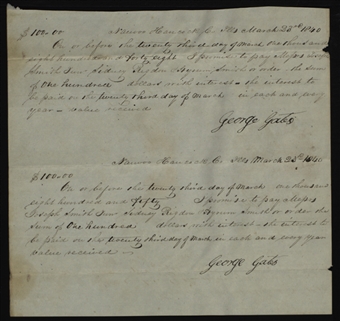 $100.00 Nauvoo Hancock Co Ills March 23rd 1840
On or before the twenty third day of March one thousand
eight hundred & forty eight I promise to pay Messrs Joseph
Smith Junr Sidney Rigdon Hyrum Smith or order the sum
of One hundred dollars with interest & the interest to
be paid on the twenty third day of March in each and every
year & value received
George Gates
Nauvoo Hancock Co Ills March 23rd 1840
$100.00
On or before the twenty third day of March one thousand
eight hundred and fifty I promise to pay Messrs
Joseph Smith Junr Sidney Rigdon Hyrum Smith or order the
sum of One hundred dollars with interest & the interest to
be paid on the twenty third day of March in each and every year
value received
George Gates